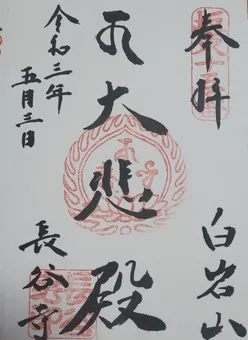 奉拝
白岩山
大悲殿
令和三年
五月三日
長谷寺